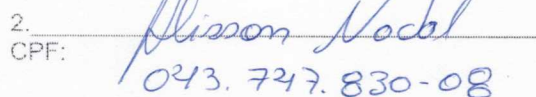 2. Alisson Nodal
CPF:
043.747.830-08